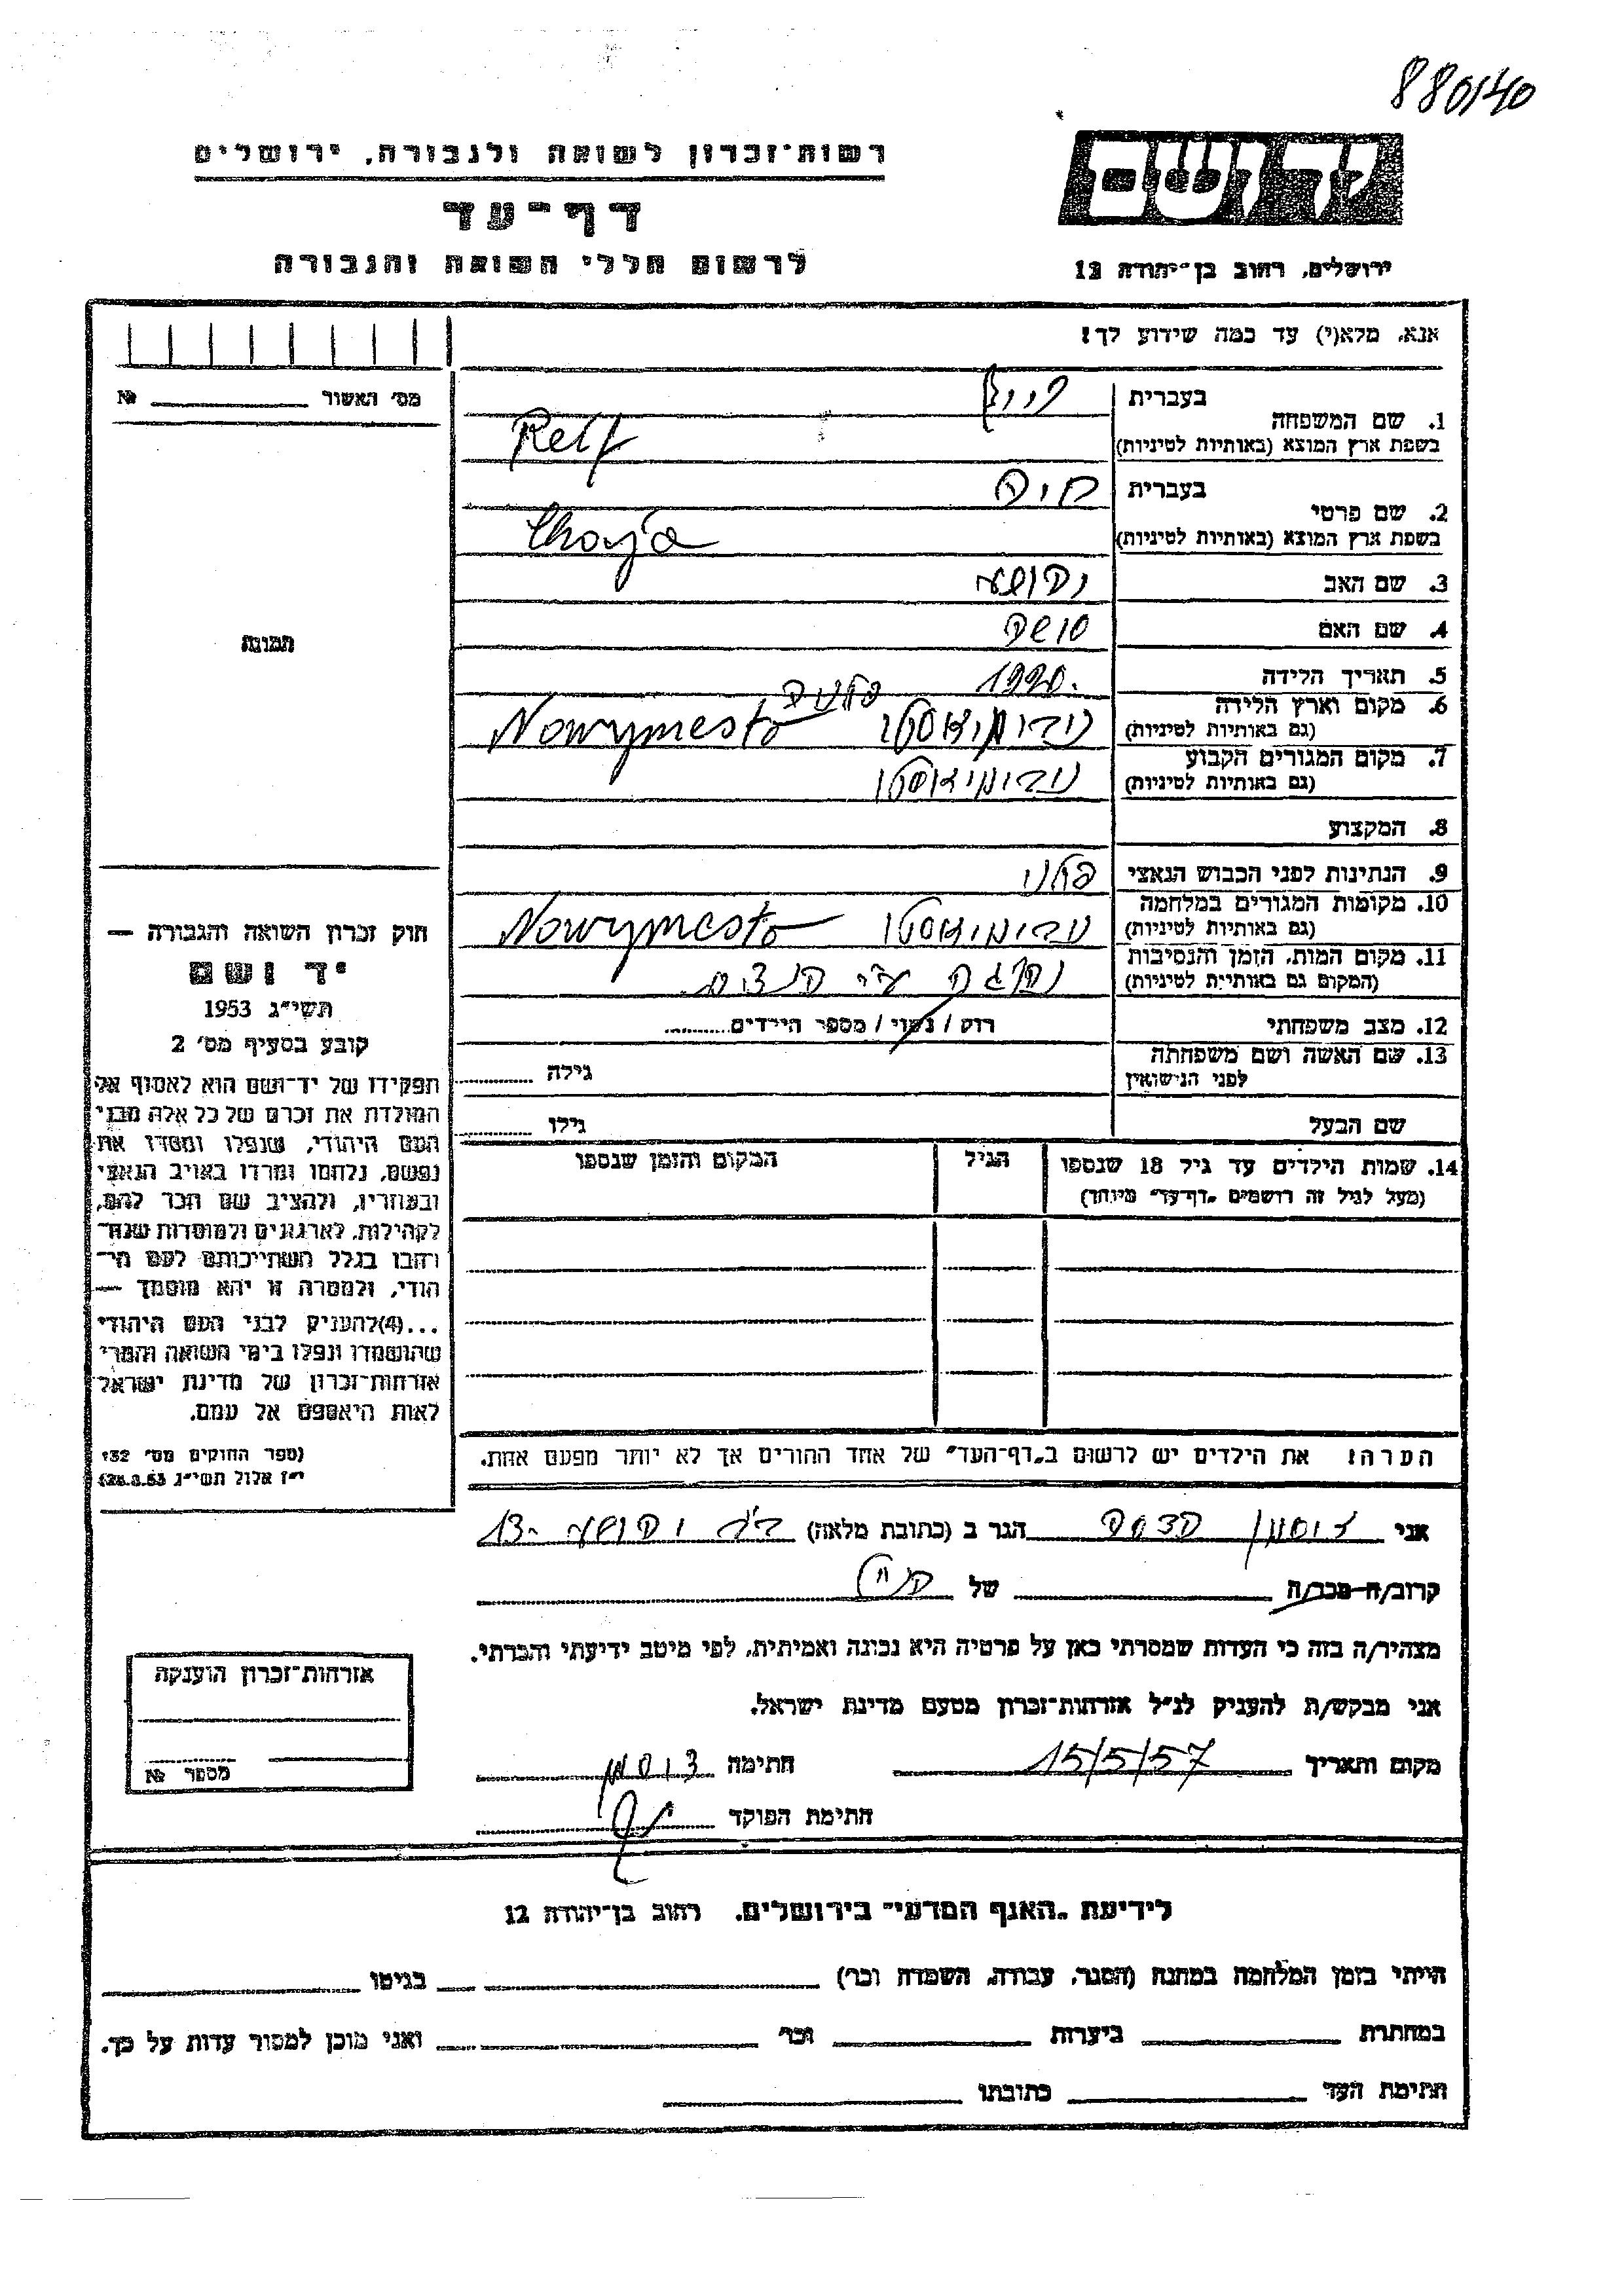 880140
רשות־זכרון לשואה ולגבורה, ירושלים
דף־עד
לרשום חללי השואה והגבורה
ידושם
ירושלים, רחוב בן־יהודה 12
אנא, מלא(י) עד כמה שידוע לך!
מס׳ האשור №
1. שם המשפחה
בעברית רייף
בשפת ארץ המוצא (באותיות לטיניות) Reif
2. שם פרטי
בעברית חיה
בשפת ארץ המוצא (באותיות לטיניות) Chaja
3. שם האב יהושע
4. שם האם
5. תאריך הלידה 1920.
6. מקום וארץ הלידה
(גם באותיות לטיניות) נובימיאסטו Nowymesto
7. מקום המגורים הקבוע
(גם באותיות לטיניות) נובימיאסטו
8. המקצוע
9. הנתינות לפני הכבוש הנאצי פולני
10. מקומות המגורים במלחמה
(גם באותיות לטיניות) נובימיאסטו Nowymesto
11. מקום המות, הזמן והנסיבות
(המקום גם באותיות לטיניות) נהרגה ע״י הנצים
12. מצב משפחתי רוק / נשוי / מספר הילדים
13. שם האשה ושם משפחתה
לפני הנישואין גילה
שם הבעל גילו
14. שמות הילדים עד גיל 18 שנספו הגיל המקום והזמן שנספו
(מעל לגיל זה רושמים „דף־עד״ מיוחד)
הערה: את הילדים יש לרשום ב„דף־העד״ של אחד ההורים אך לא יותר מפעם אחת.
תמונה
חוק זכרון השואה והגבורה —
יד ושם
תשי״ג 1953
קובע בסעיף מס׳ 2
תפקידו של יד־ושם הוא לאסוף אל
המולדת את זכרם של כל אלה מבני
העם היהודי, שנפלו ומסרו את
נפשם, נלחמו ומרדו באויב הנאצי
ובעוזריו, ולהציב שם וזכר להם,
לקהילות, לארגונים ולמוסדות שנח־
רחבו בגלל השתייכותם לעם הי־
הודי, ולמטרה זו יהא מוסמך —
...(4)להעניק לבני העם היהודי
שהושמדו ונפלו בימי השואה והמרי
אזרחות־זכרון של מדינת ישראל
לאות היאספם אל עמם.
(ספר החוקים מס׳ 132
י״ז אלול תשי״ג 28.8.53)
אני הדסה הגר ב (כתובת מלאה) יהושע 13-
קרוב/ה מכר/ה של הנ״ל
מצהיר/ה בזה כי העדות שמסרתי כאן על פרטיה היא נכונה ואמיתית, לפי מיטב ידיעתי והכרתי.
אני מבקש/ת להעניק לנ״ל אזרחות־זכרון מטעם מדינת ישראל.
מקום ותאריך 15/5/57 חתימה
חתימת הפוקד
אזרחות־זכרון הוענקה
מספר №
לידיעת „האגף המדעי״ בירושלים, רחוב בן־יהודה 12
הייתי בזמן המלחמה במחנה (הסגר, עבודה, השמדה וכו׳) בגיטו
במחתרת ביערות וכו׳ ואני מוכן למסור עדות על כך.
חתימת העד כתובתו